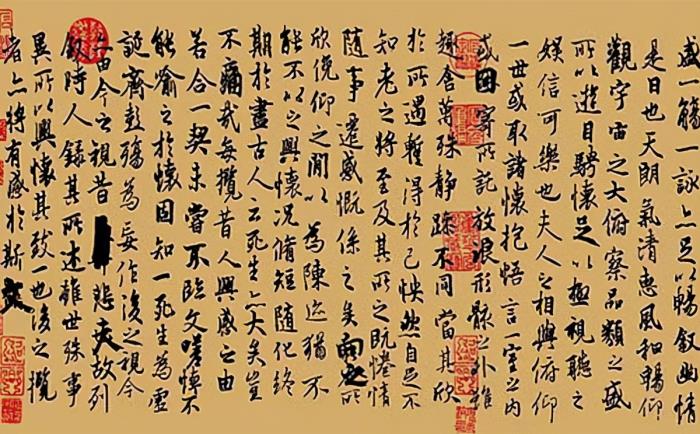 盛一觴一詠亦足以暢敘幽情
是日也天朗氣清惠風和暢仰
觀宇宙之大俯察品類之盛
所以遊目騁懷足以極視聽之
娛信可樂也夫人之相與俯仰
一世或取諸懷抱悟言一室之內
或因寄所託放浪形骸之外雖
趣舍萬殊靜躁不同當其欣
於所遇暫得於己怏然自足不
知老之將至及其所之既惓情
隨事遷感慨係之矣向之所
欣俛仰之閒以為陳迹猶不
能不以之興懷況脩短隨化終
期於盡古人云死生亦大矣豈
不痛哉每攬昔人興感之由
若合一契未嘗不臨文嗟悼不
能喻之於懷固知一死生為虛
誕齊彭殤為妄作後之視今
亦由今之視昔悲夫故列
敘時人錄其所述雖世殊事
異所以興懷其致一也後之攬
者亦將有感於斯文